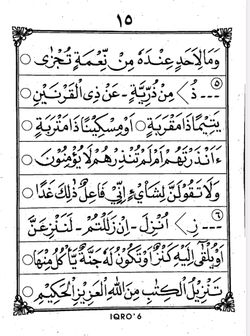 ١٥
وَمَا لِأَحَدٍ عِنْدَهُ مِنْ نِّعْمَةٍ تُجْزَى ○
٥ ... ذُ > مِنْ ذُرِّيَّةٍ - عَنْ ذِى الْقَرْنَيْنِ
يَتِيْمًا ذَا مَقْرَبَةٍ ○ اَوْ مِسْكِيْنًا ذَا مَتْرَبَةٍ ○
ءَاَنْذَرْتَهُمْ اَمْ لَمْ تُنْذِرْهُمْ لَا يُؤْمِنُوْنَ ○
وَلَا تَقُوْلَنَّ لِشَايْءٍ اِنِّيْ فَاعِلٌ ذٰلِكَ غَدًا ○
٦ ... زِ > اُنْزِلَ - اِنْ زَلَلْتُمْ - لَنَنْزِعَنَّ
اَوْ يُلْقٰى اِلَيْهِ كَنْزٌ اَوْ تَكُوْنُ لَهُ جَنَّةٌ يَأْكُلُ مِنْهَا ○
تَنْزِيْلُ الْكِتٰبِ مِنَ اللهِ الْعَزِيْزِ الْحَكِيْمِ ○
IQRO'6